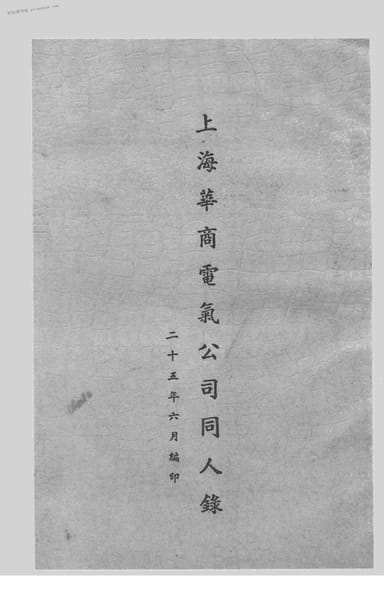 上海華商電氣公司同人錄
二十五年六月編印